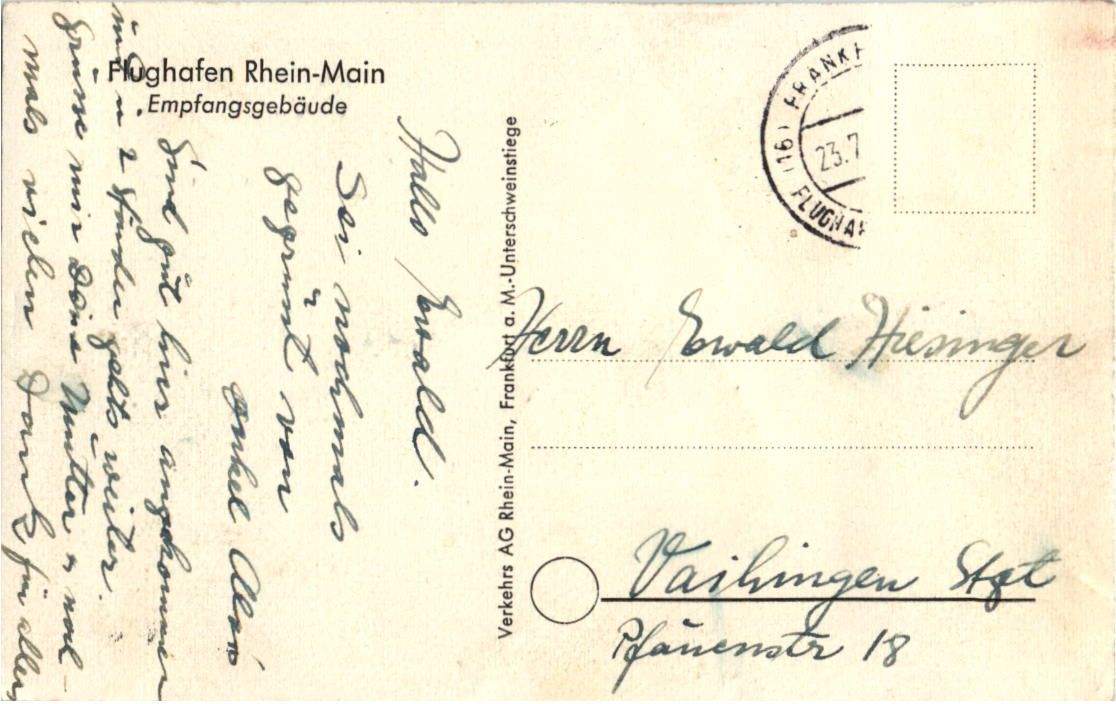 Flughafen Rhein-Main
Empfangsgebäude
Hallo Ewald.
Sei nochmals
gegrüsst von
onkel
Sind gut hier angekommen
und in 2 Stunden gehts weiter.
grüsse mir Deine Mutter u noch-
mals vielen Dank für alles,
Verkehrs AG Rhein-Main, Frankfurt a. M.-Unterschweinstiege
(16) FRANKF
23.7
FLUGHAF
Herrn Ewald Hiesinger
Vaihingen Stgt
Pfauenstr 18